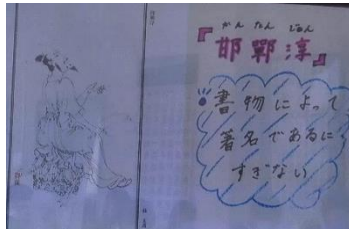 かん たん じゅん
『邯鄲淳』
書物によって
著名であるに
すぎない